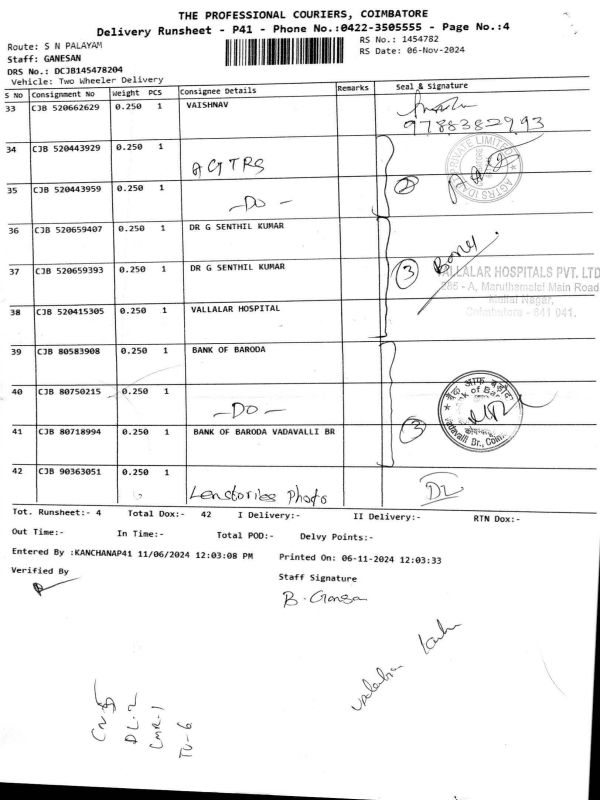 THE PROFESSIONAL COURIERS, COIMBATORE
Delivery Runsheet - P41 - Phone No.:0422-3505555 - Page No.:4
Route: S N PALAYAM
RS No.: 1454782
Staff: GANESAN
RS Date: 06-Nov-2024
DRS No.: DCJB145478204
Vehicle: Two Wheeler Delivery
S No Consignment No Weight PCS Consignee Details Remarks Seal & Signature
33 CJB 520662629 0.250 1 VAISHNAV
9788382993
34 CJB 520443929 0.250 1 AGTRS
PRIVATE LIMITED
35 CJB 520443959 0.250 1 -DO- 2
36 CJB 520659407 0.250 1 DR G SENTHIL KUMAR
37 CJB 520659393 0.250 1 DR G SENTHIL KUMAR 3
VALLALAR HOSPITALS PVT. LTD
285 - A, Maruthamalai Main Road
Mullai Nagar,
Coimbatore - 641 041.
38 CJB 520415305 0.250 1 VALLALAR HOSPITAL
39 CJB 80583908 0.250 1 BANK OF BARODA
40 CJB 80750215 0.250 1 -DO-
41 CJB 80718994 0.250 1 BANK OF BARODA VADAVALLI BR 3
Vadavalli Br., Coim.
42 CJB 90363051 0.250 1 Lenstories Photo DL
Tot. Runsheet:- 4 Total Dox:- 42 I Delivery:- II Delivery:- RTN Dox:-
Out Time:- In Time:- Total POD:- Delvy Points:-
Entered By :KANCHANAP41 11/06/2024 12:03:08 PM Printed On: 06-11-2024 12:03:33
Verified By
Staff Signature
DL-2
CMR-1
TU-6